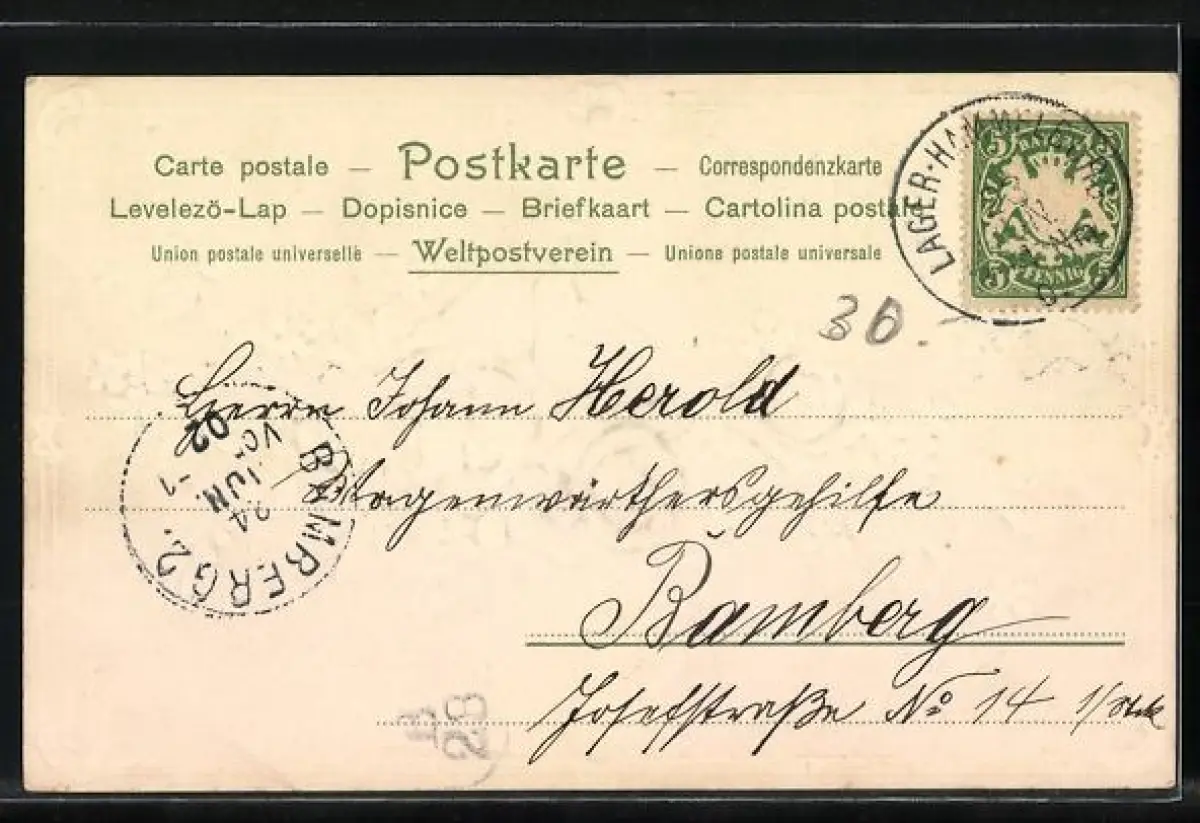 Carte postale — Postkarte — Correspondenzkarte
Levelezö-Lap — Dopisnice — Briefkaart — Cartolina postale
Union postale universelle — Weltpostverein — Unione postale universale
LAGER-HAMMELBURG
BAYERN
5 5
5 PFENNIG 5
30.
Herrn Johann Herold
Wagenwärthersgehilfe
Bamberg
Josefstraße No 14 1/Stck
BAMBERG 2.
24
JUN.
VOR
-1
02
B
28